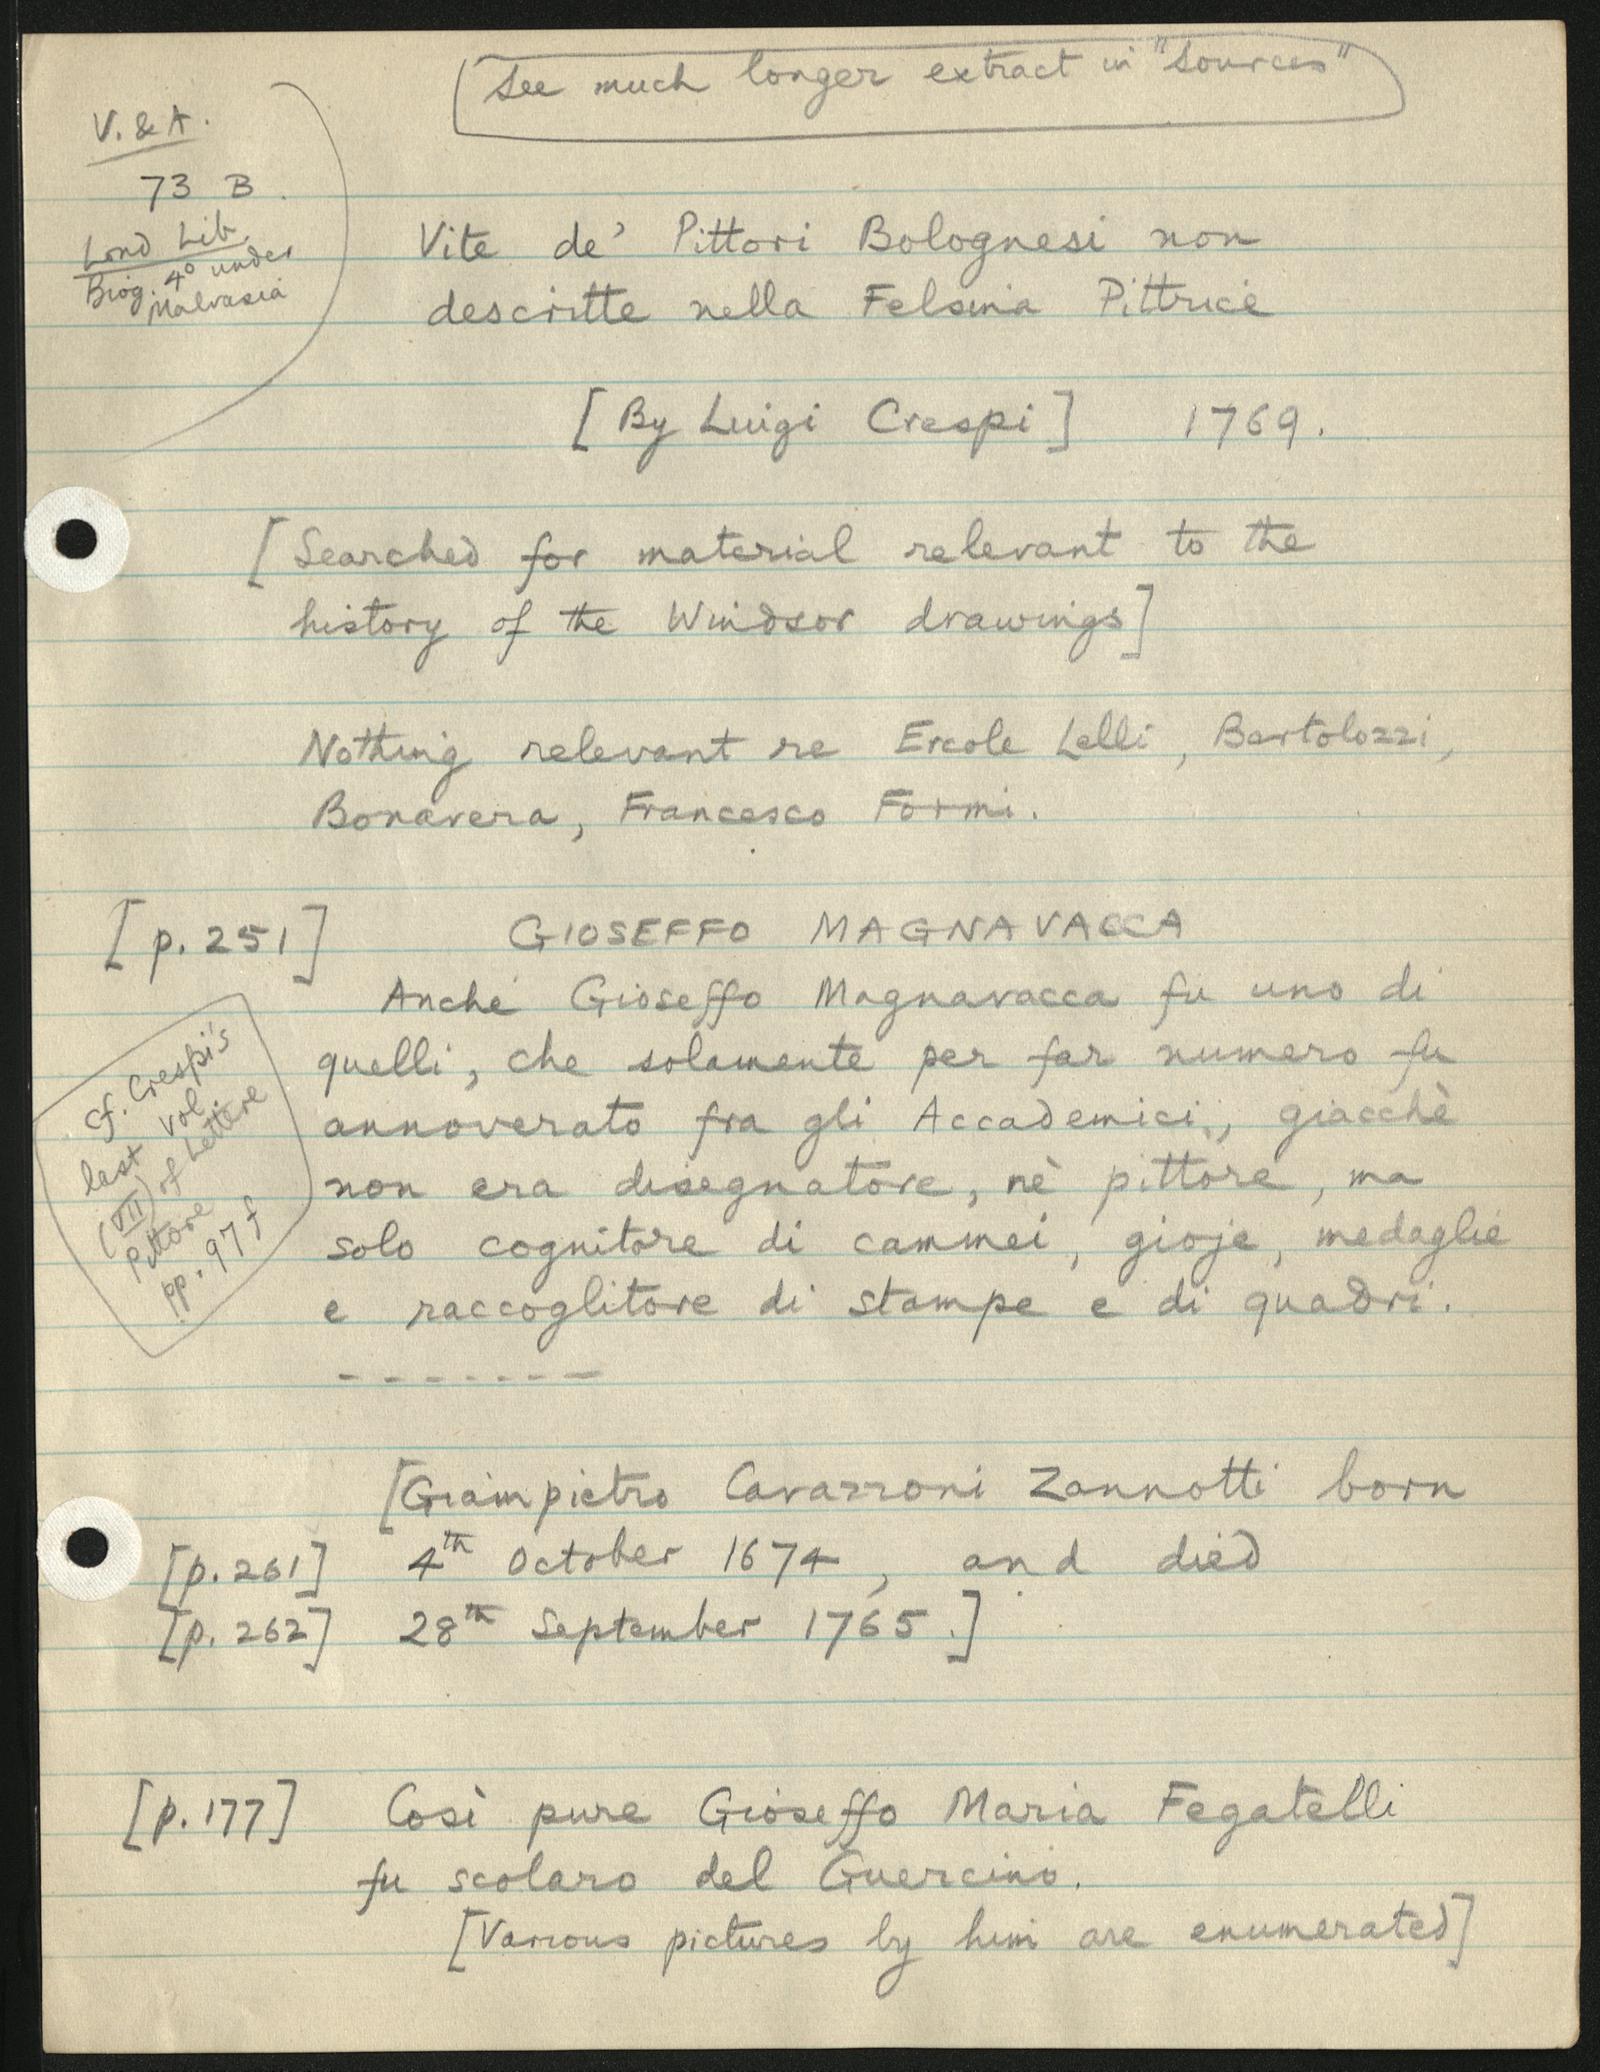 See much longer extract in "Sources"
V. & A.
73 B.
Lond Lib.
Biog. 4º under
Malvasia
Vite de' Pittori Bolognesi non
descritte nella Felsina Pittrice
[By Luigi Crespi] 1769.
[Searched for material relevant to the
history of the Windsor drawings]
Nothing relevant re Ercole Lelli, Bartolozzi,
Bonavera, Francesco Formi.
[p. 251] GIOSEFFO MAGNAVACCA
Anche Gioseffo Magnavacca fu uno di
quelli, che solamente per far numero fu
annoverato fra gli Accademici, giacchè
non era disegnatore, nè pittore, ma
solo cognitore di cammei, gioje, medaglie
e raccoglitore di stampe e di quadri.
- - - - - - -
cf. Crespi's
last vol.
(VII) of Lettere
Pittore
pp. 97 f
[Giampietro Cavazzoni Zannotti born
[p. 261] 4th October 1674, and died
[p. 262] 28th September 1765.]
[p. 177] Così pure Gioseffo Maria Fegatelli
fu scolaro del Guercino.
[Various pictures by him are enumerated]